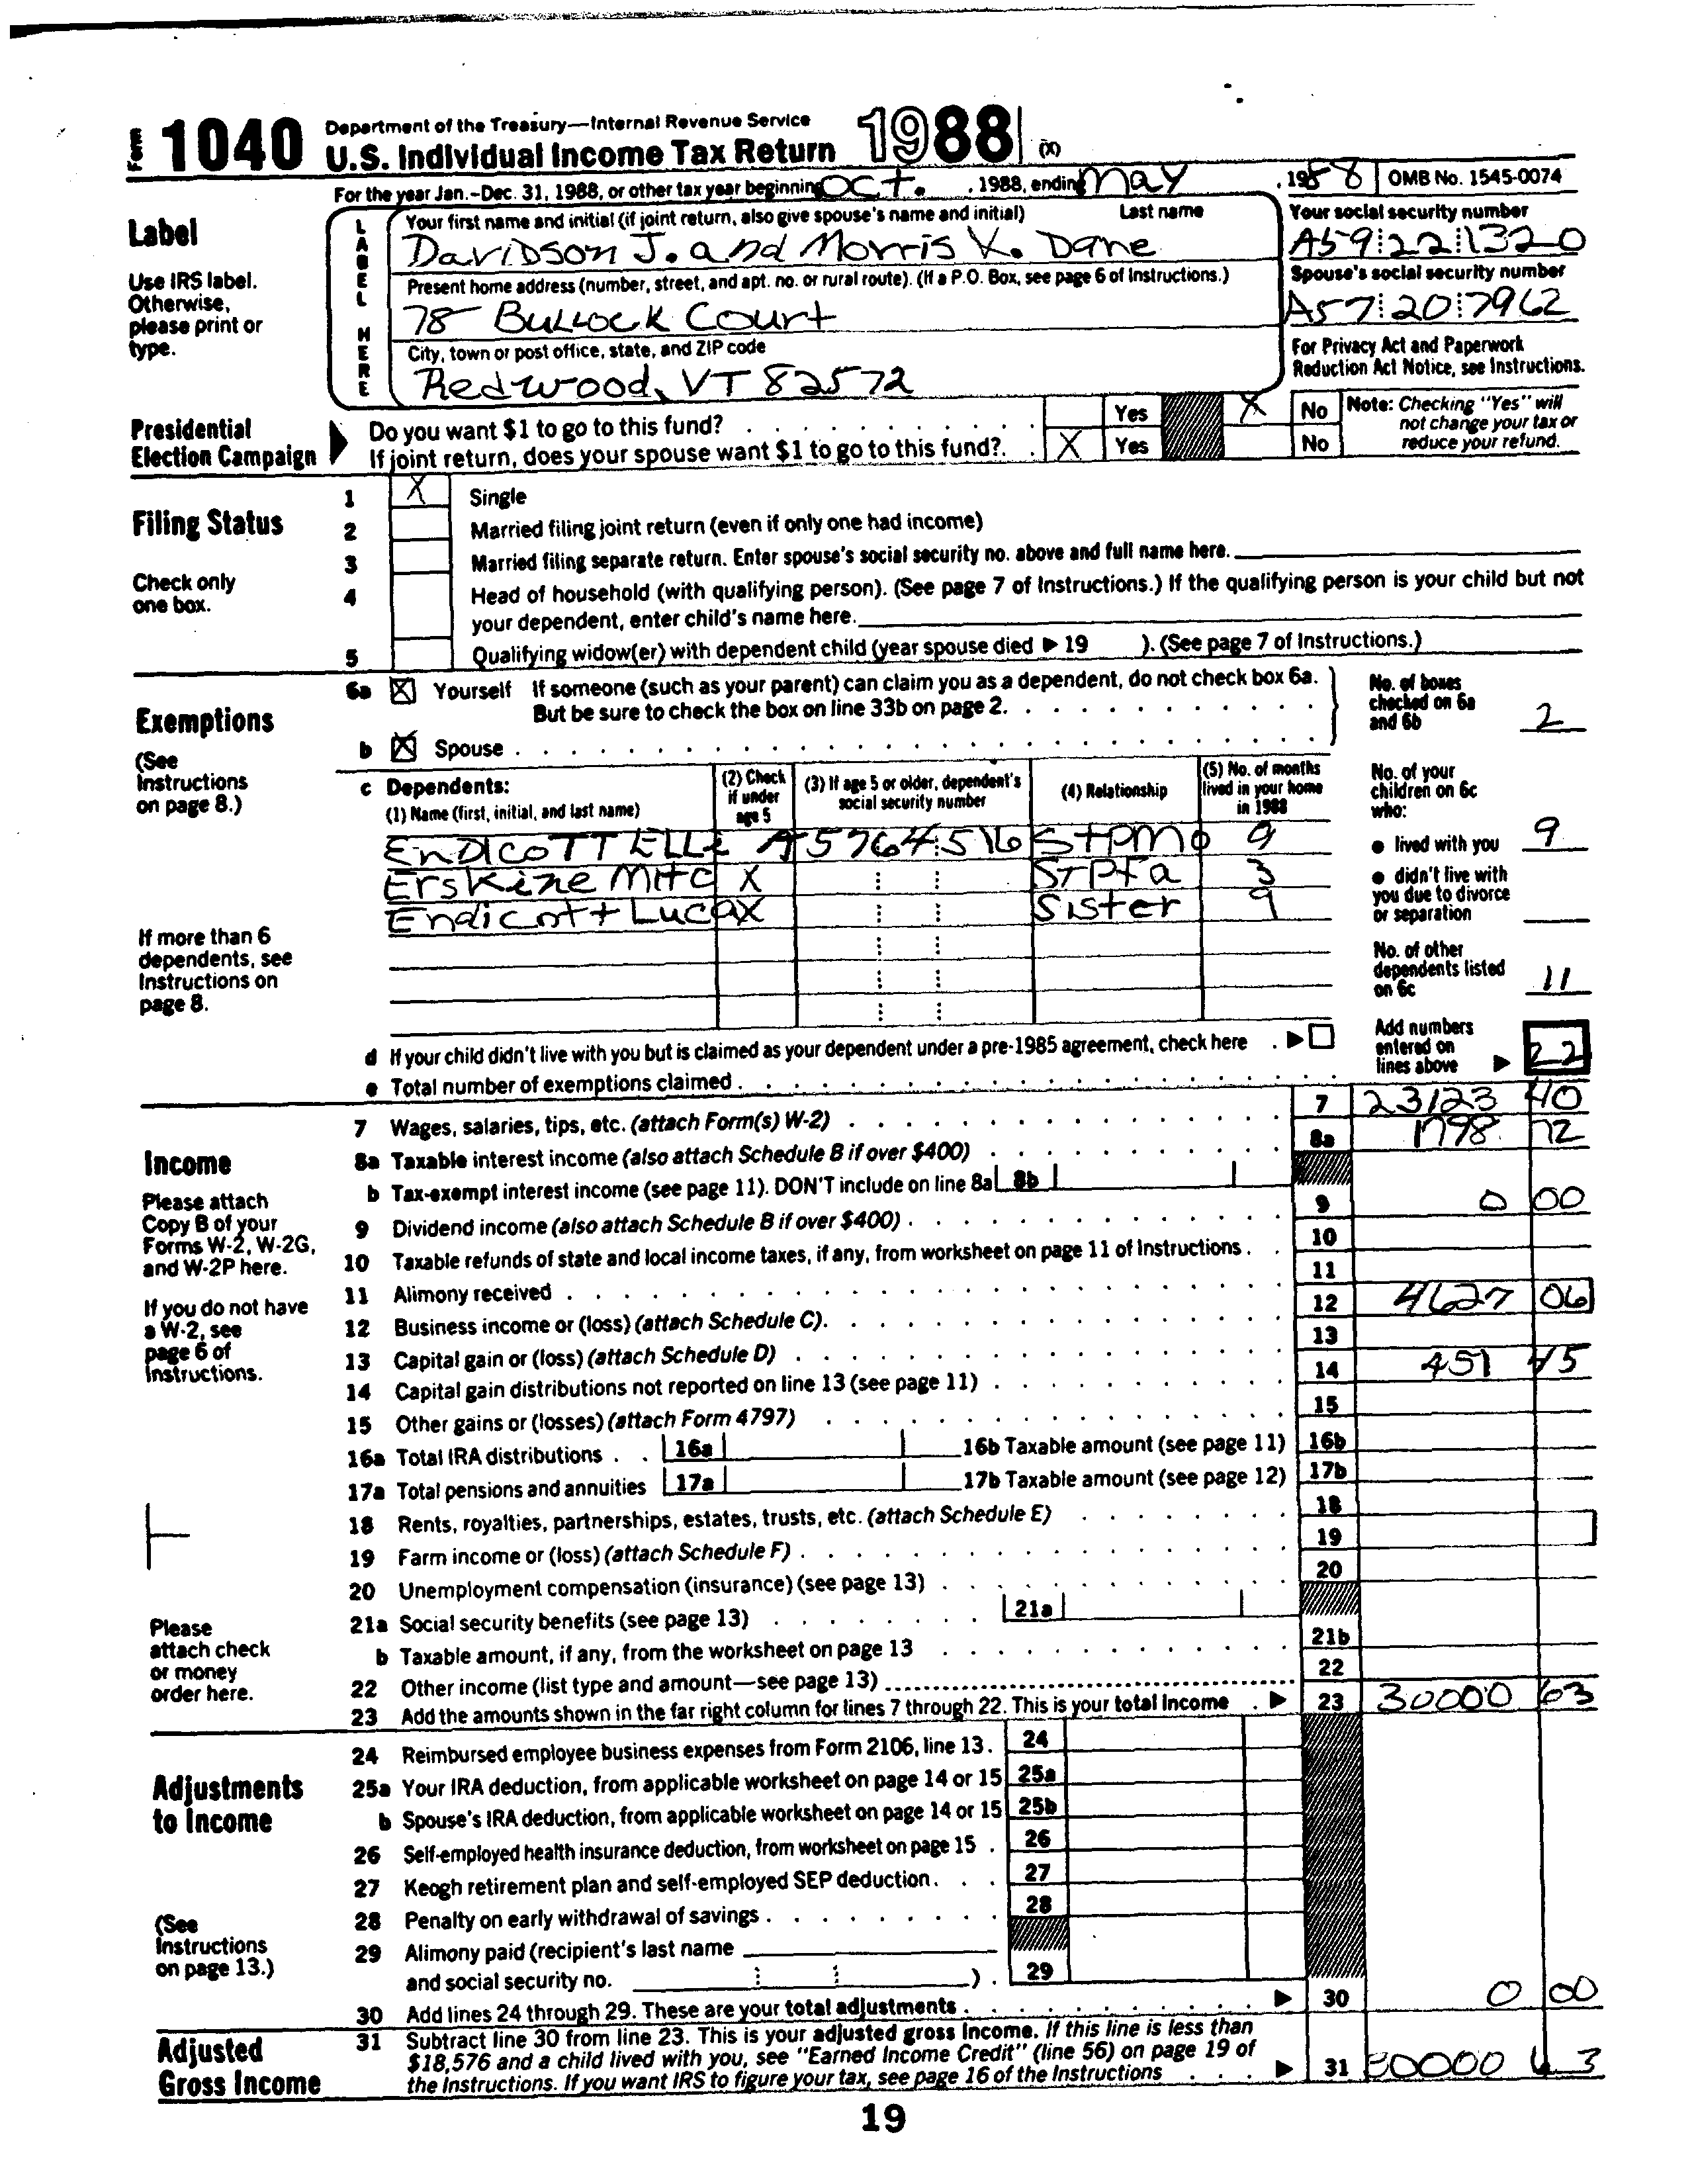 Form 1040 Department of the Treasury—Internal Revenue Service
U.S. Individual Income Tax Return 1988 (X)
For the year Jan.-Dec. 31, 1988, or other tax year beginning Oct. , 1988, ending May , 1988 OMB No. 1545-0074
Label
Use IRS label. Otherwise, please print or type.
LABEL HERE
Your first name and initial (if joint return, also give spouse's name and initial) Last name
Davidson J. and Morris K. Dane
Your social security number
A59 22 1320
Present home address (number, street, and apt. no. or rural route). (If a P.O. Box, see page 6 of Instructions.)
78 Bullock Court
Spouse's social security number
A57 20 7962
City, town or post office, state, and ZIP code
Redwood, VT 82572
For Privacy Act and Paperwork Reduction Act Notice, see Instructions.
Presidential Election Campaign
Do you want $1 to go to this fund? Yes X No
If joint return, does your spouse want $1 to go to this fund? X Yes No
Note: Checking "Yes" will not change your tax or reduce your refund.
Filing Status
Check only one box.
1 X Single
2 Married filing joint return (even if only one had income)
3 Married filing separate return. Enter spouse's social security no. above and full name here.
4 Head of household (with qualifying person). (See page 7 of Instructions.) If the qualifying person is your child but not
your dependent, enter child's name here.
5 Qualifying widow(er) with dependent child (year spouse died ▶ 19 ). (See page 7 of Instructions.)
Exemptions
(See Instructions on page 8.)
6a X Yourself If someone (such as your parent) can claim you as a dependent, do not check box 6a.
But be sure to check the box on line 33b on page 2.
b X Spouse
No. of boxes checked on 6a and 6b 2
c Dependents:
(1) Name (first, initial, and last name) (2) Check if under age 5 (3) If age 5 or older, dependent's social security number (4) Relationship (5) No. of months lived in your home in 1988
Endicott Elli A5764516 StpMo 9
Erskine Mitc X StPFa 3
Endicott Luca X Sister 9
No. of your children on 6c who:
● lived with you 9
● didn't live with you due to divorce or separation
No. of other dependents listed on 6c 11
If more than 6 dependents, see Instructions on page 8.
d If your child didn't live with you but is claimed as your dependent under a pre-1985 agreement, check here ▶
e Total number of exemptions claimed
Add numbers entered on lines above ▶ 22
Income
Please attach Copy B of your Forms W-2, W-2G, and W-2P here.
If you do not have a W-2, see page 6 of Instructions.
Please attach check or money order here.
7 Wages, salaries, tips, etc. (attach Form(s) W-2) 7 23123 40
8a Taxable interest income (also attach Schedule B if over $400) 8a 1798 72
b Tax-exempt interest income (see page 11). DON'T include on line 8a 8b
9 Dividend income (also attach Schedule B if over $400) 9 0 00
10 Taxable refunds of state and local income taxes, if any, from worksheet on page 11 of Instructions. 10
11 Alimony received 11
12 Business income or (loss) (attach Schedule C). 12 4627 06
13 Capital gain or (loss) (attach Schedule D) 13
14 Capital gain distributions not reported on line 13 (see page 11) 14 451 45
15 Other gains or (losses) (attach Form 4797) 15
16a Total IRA distributions 16a 16b Taxable amount (see page 11) 16b
17a Total pensions and annuities 17a 17b Taxable amount (see page 12) 17b
18 Rents, royalties, partnerships, estates, trusts, etc. (attach Schedule E) 18
19 Farm income or (loss) (attach Schedule F) 19
20 Unemployment compensation (insurance) (see page 13) 20
21a Social security benefits (see page 13) 21a
b Taxable amount, if any, from the worksheet on page 13 21b
22 Other income (list type and amount—see page 13) 22
23 Add the amounts shown in the far right column for lines 7 through 22. This is your total income ▶ 23 30000 63
Adjustments to Income
(See Instructions on page 13.)
24 Reimbursed employee business expenses from Form 2106, line 13. 24
25a Your IRA deduction, from applicable worksheet on page 14 or 15 25a
b Spouse's IRA deduction, from applicable worksheet on page 14 or 15 25b
26 Self-employed health insurance deduction, from worksheet on page 15 26
27 Keogh retirement plan and self-employed SEP deduction 27
28 Penalty on early withdrawal of savings 28
29 Alimony paid (recipient's last name
and social security no. ) 29
30 Add lines 24 through 29. These are your total adjustments ▶ 30 0 00
Adjusted Gross Income
31 Subtract line 30 from line 23. This is your adjusted gross income. If this line is less than
$18,576 and a child lived with you, see "Earned Income Credit" (line 56) on page 19 of
the Instructions. If you want IRS to figure your tax, see page 16 of the Instructions ▶ 31 30000 63
19